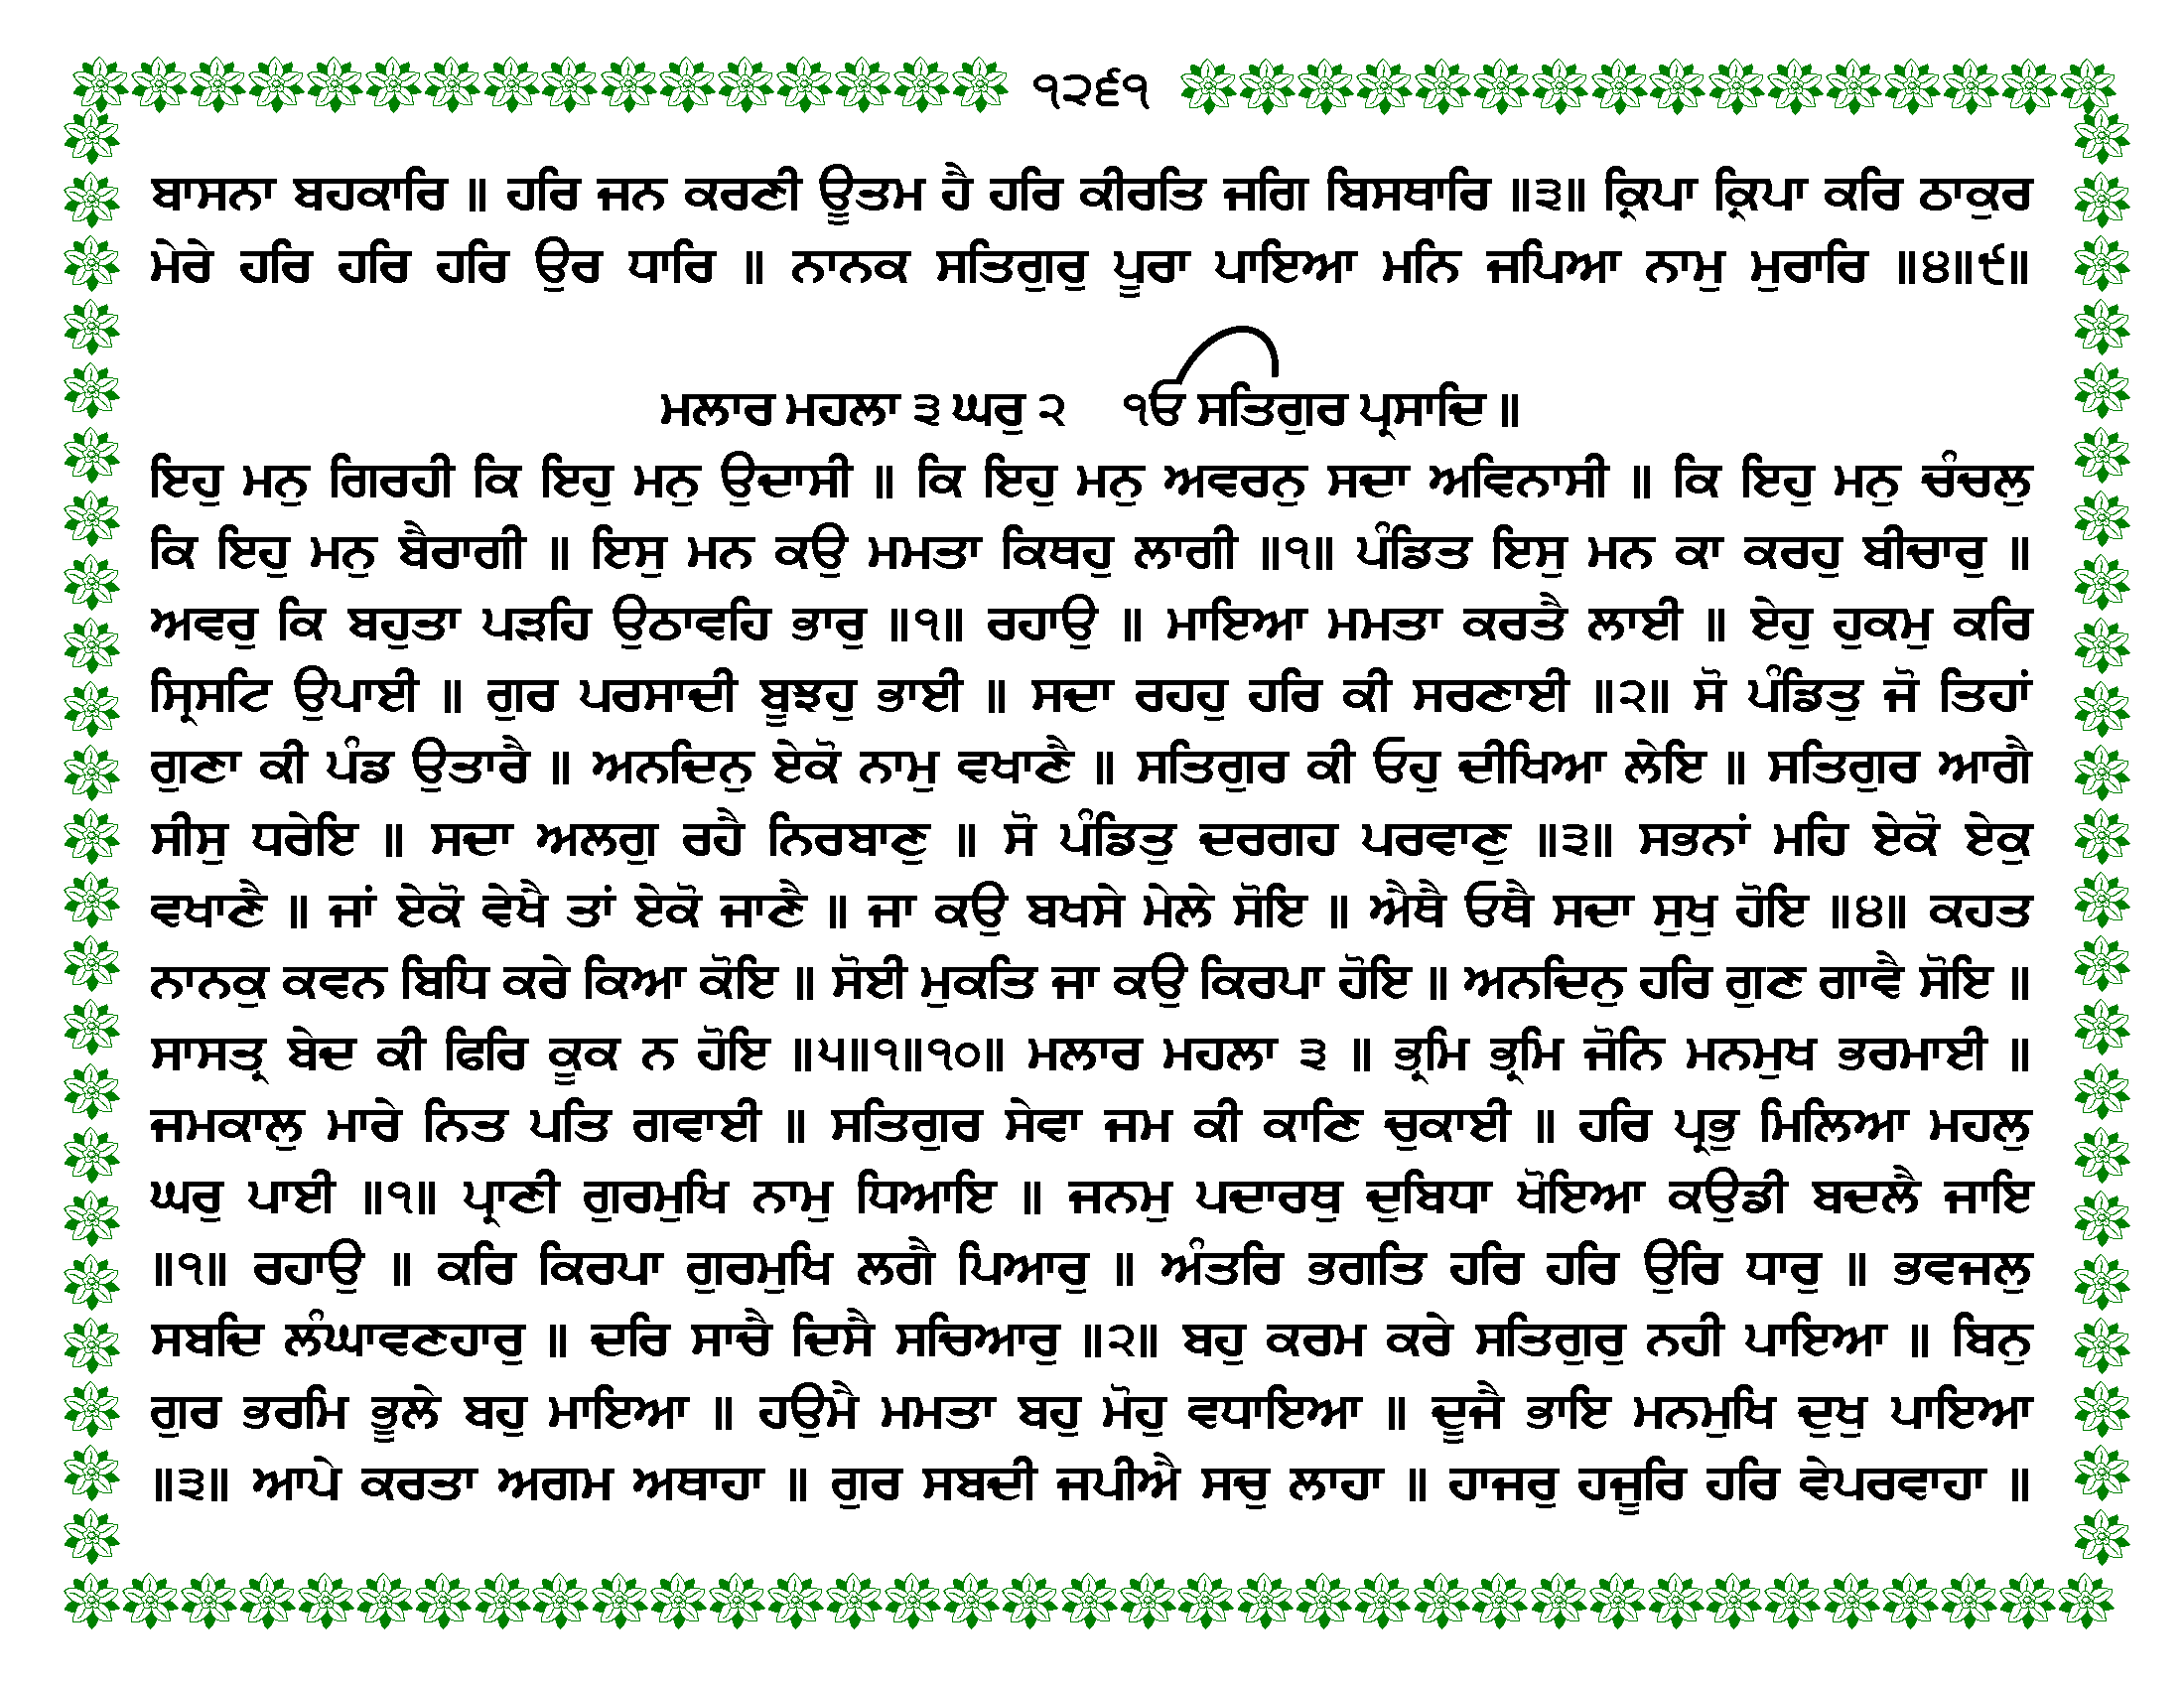 ੧੨੬੧
ਬਾਸਨਾ ਬਹਕਾਰਿ ॥ ਹਰਿ ਜਨ ਕਰਣੀ ਊਤਮ ਹੈ ਹਰਿ ਕੀਰਤਿ ਜਗਿ ਬਿਸਥਾਰਿ ॥੩॥ ਕ੍ਰਿਪਾ ਕ੍ਰਿਪਾ ਕਰਿ ਠਾਕੁਰ
ਮੇਰੇ ਹਰਿ ਹਰਿ ਹਰਿ ਉਰ ਧਾਰਿ ॥ ਨਾਨਕ ਸਤਿਗੁਰੁ ਪੂਰਾ ਪਾਇਆ ਮਨਿ ਜਪਿਆ ਨਾਮੁ ਮੁਰਾਰਿ ॥੪॥੯॥
ਮਲਾਰ ਮਹਲਾ ੩ ਘਰੁ ੨ ੴ ਸਤਿਗੁਰ ਪ੍ਰਸਾਦਿ ॥
ਇਹੁ ਮਨੁ ਗਿਰਹੀ ਕਿ ਇਹੁ ਮਨੁ ਉਦਾਸੀ ॥ ਕਿ ਇਹੁ ਮਨੁ ਅਵਰਨੁ ਸਦਾ ਅਵਿਨਾਸੀ ॥ ਕਿ ਇਹੁ ਮਨੁ ਚੰਚਲੁ
ਕਿ ਇਹੁ ਮਨੁ ਬੈਰਾਗੀ ॥ ਇਸੁ ਮਨ ਕਉ ਮਮਤਾ ਕਿਥਹੁ ਲਾਗੀ ॥੧॥ ਪੰਡਿਤ ਇਸੁ ਮਨ ਕਾ ਕਰਹੁ ਬੀਚਾਰੁ ॥
ਅਵਰੁ ਕਿ ਬਹੁਤਾ ਪੜਹਿ ਉਠਾਵਹਿ ਭਾਰੁ ॥੧॥ ਰਹਾਉ ॥ ਮਾਇਆ ਮਮਤਾ ਕਰਤੈ ਲਾਈ ॥ ਏਹੁ ਹੁਕਮੁ ਕਰਿ
ਸ੍ਰਿਸਟਿ ਉਪਾਈ ॥ ਗੁਰ ਪਰਸਾਦੀ ਬੂਝਹੁ ਭਾਈ ॥ ਸਦਾ ਰਹਹੁ ਹਰਿ ਕੀ ਸਰਣਾਈ ॥੨॥ ਸੋ ਪੰਡਿਤੁ ਜੋ ਤਿਹਾਂ
ਗੁਣਾ ਕੀ ਪੰਡ ਉਤਾਰੈ ॥ ਅਨਦਿਨੁ ਏਕੋ ਨਾਮੁ ਵਖਾਣੈ ॥ ਸਤਿਗੁਰ ਕੀ ਓਹੁ ਦੀਖਿਆ ਲੇਇ ॥ ਸਤਿਗੁਰ ਆਗੈ
ਸੀਸੁ ਧਰੇਇ ॥ ਸਦਾ ਅਲਗੁ ਰਹੈ ਨਿਰਬਾਣੁ ॥ ਸੋ ਪੰਡਿਤੁ ਦਰਗਹ ਪਰਵਾਣੁ ॥੩॥ ਸਭਨਾਂ ਮਹਿ ਏਕੋ ਏਕੁ
ਵਖਾਣੈ ॥ ਜਾਂ ਏਕੋ ਵੇਖੈ ਤਾਂ ਏਕੋ ਜਾਣੈ ॥ ਜਾ ਕਉ ਬਖਸੇ ਮੇਲੇ ਸੋਇ ॥ ਐਥੈ ਓਥੈ ਸਦਾ ਸੁਖੁ ਹੋਇ ॥੪॥ ਕਹਤ
ਨਾਨਕੁ ਕਵਨ ਬਿਧਿ ਕਰੇ ਕਿਆ ਕੋਇ ॥ ਸੋਈ ਮੁਕਤਿ ਜਾ ਕਉ ਕਿਰਪਾ ਹੋਇ ॥ ਅਨਦਿਨੁ ਹਰਿ ਗੁਣ ਗਾਵੈ ਸੋਇ ॥
ਸਾਸਤ੍ਰ ਬੇਦ ਕੀ ਫਿਰਿ ਕੂਕ ਨ ਹੋਇ ॥੫॥੧॥੧੦॥ ਮਲਾਰ ਮਹਲਾ ੩ ॥ ਭ੍ਰਮਿ ਭ੍ਰਮਿ ਜੋਨਿ ਮਨਮੁਖ ਭਰਮਾਈ ॥
ਜਮਕਾਲੁ ਮਾਰੇ ਨਿਤ ਪਤਿ ਗਵਾਈ ॥ ਸਤਿਗੁਰ ਸੇਵਾ ਜਮ ਕੀ ਕਾਣਿ ਚੁਕਾਈ ॥ ਹਰਿ ਪ੍ਰਭੁ ਮਿਲਿਆ ਮਹਲੁ
ਘਰੁ ਪਾਈ ॥੧॥ ਪ੍ਰਾਣੀ ਗੁਰਮੁਖਿ ਨਾਮੁ ਧਿਆਇ ॥ ਜਨਮੁ ਪਦਾਰਥੁ ਦੁਬਿਧਾ ਖੋਇਆ ਕਉਡੀ ਬਦਲੈ ਜਾਇ
॥੧॥ ਰਹਾਉ ॥ ਕਰਿ ਕਿਰਪਾ ਗੁਰਮੁਖਿ ਲਗੈ ਪਿਆਰੁ ॥ ਅੰਤਰਿ ਭਗਤਿ ਹਰਿ ਹਰਿ ਉਰਿ ਧਾਰੁ ॥ ਭਵਜਲੁ
ਸਬਦਿ ਲੰਘਾਵਣਹਾਰੁ ॥ ਦਰਿ ਸਾਚੈ ਦਿਸੈ ਸਚਿਆਰੁ ॥੨॥ ਬਹੁ ਕਰਮ ਕਰੇ ਸਤਿਗੁਰੁ ਨਹੀ ਪਾਇਆ ॥ ਬਿਨੁ
ਗੁਰ ਭਰਮਿ ਭੂਲੇ ਬਹੁ ਮਾਇਆ ॥ ਹਉਮੈ ਮਮਤਾ ਬਹੁ ਮੋਹੁ ਵਧਾਇਆ ॥ ਦੂਜੈ ਭਾਇ ਮਨਮੁਖਿ ਦੁਖੁ ਪਾਇਆ
॥੩॥ ਆਪੇ ਕਰਤਾ ਅਗਮ ਅਥਾਹਾ ॥ ਗੁਰ ਸਬਦੀ ਜਪੀਐ ਸਚੁ ਲਾਹਾ ॥ ਹਾਜਰੁ ਹਜੂਰਿ ਹਰਿ ਵੇਪਰਵਾਹਾ ॥